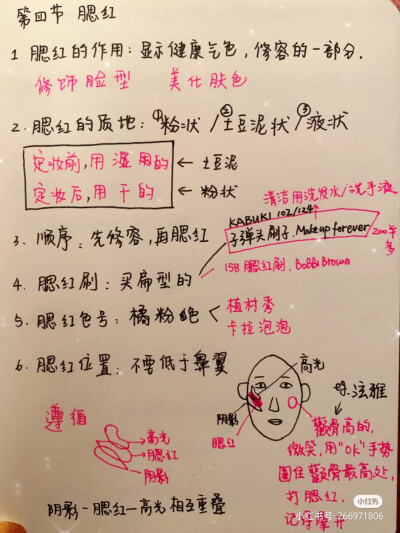 第四节 腮红
1 腮红的作用：显示健康气色，修容的一部分.
修饰脸型 美化肤色
2. 腮红的质地：①粉状 / ②土豆泥状 / ③液状
定妆前,用湿用的 ← 土豆泥
定妆后,用干的 ← 粉状
清洁用洗发水/洗手液
KABUKI 102/124
3. 顺序：先修容,再腮红
子弹头刷子. Make up forever
200年
4. 腮红刷：买扁型的
158 腮红刷. Bobbi Brown
5. 腮红色号：橘粉色
植村秀
卡拉泡泡
6. 腮红位置：不要低于鼻翼
高光
阴影
腮红
遵循
高光
腮红
阴影
颧骨高的.
微笑,用"OK"手势
圈住颧骨最高处,
打腮红.
记得晕开
阴影-腮红-高光相互重叠
小红书
小红书号: 266971806